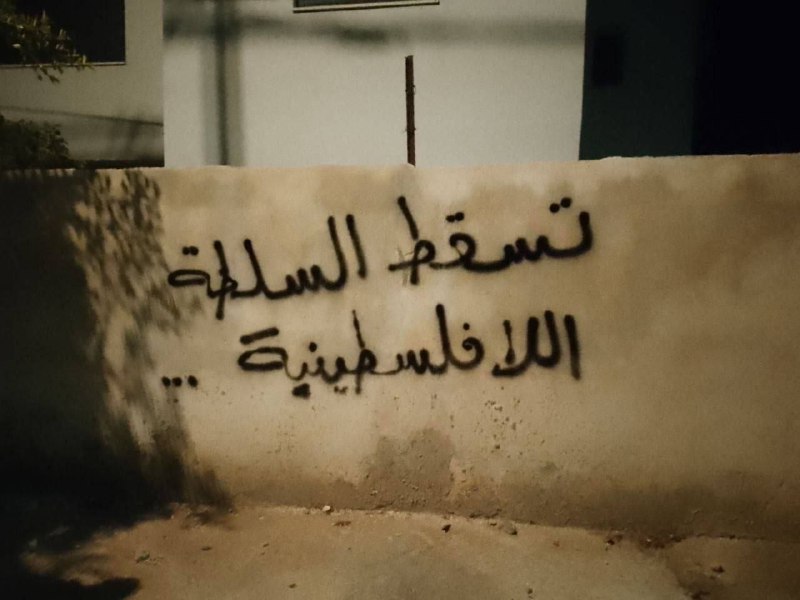 تسقط السلطة
اللا فلسطينية ...